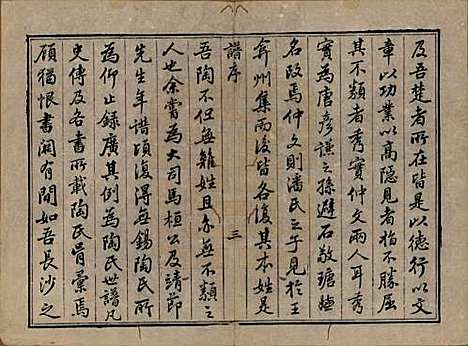 及吾楚者所在皆是以德行以文
章以功業以高隱見者指不勝屈
其不類者秀實仲文兩人耳秀
實為唐彥謙之孫避石敬瑭嫌
名改馬仲文則潘氏之子見於王
弇州集而後皆各復其本姓是
譜序
三
吾陶不但無雜姓且亦無不類之
人也余嘗為大司馬桓公及靖節
先生年譜頃復得無錫陶氏所
為仰止錄廣其例為陶氏世譜凡
史傳及各書所載陶氏畧彙焉
顧猶恨書闕有閒如吾長沙之